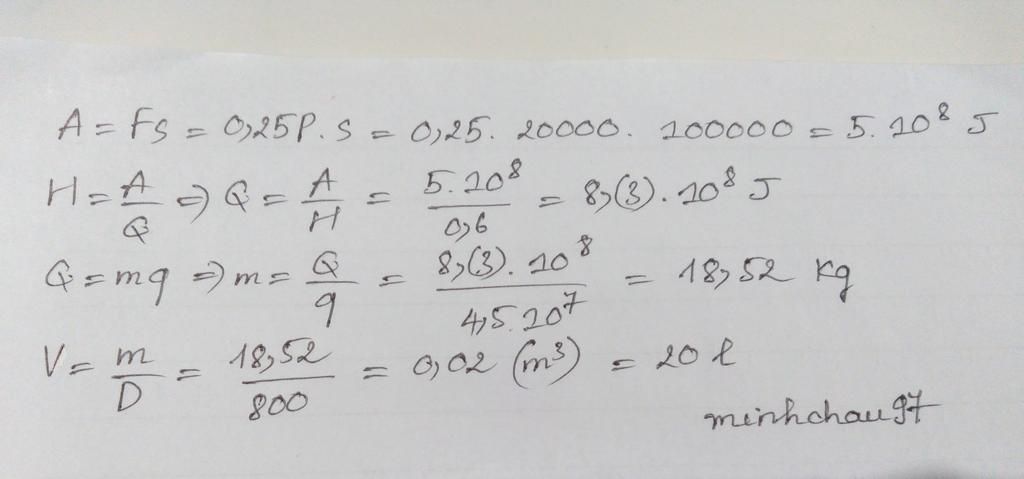 A = Fs = 0,25P.s = 0,25. 20000. 100000 = 5.10⁸ J
H = A/Q => Q = A/H = 5.10⁸/0,6 = 8,(3).10⁸ J
Q = mq => m = Q/q = 8,(3).10⁸/4,5.10⁷ = 18,52 kg
V = m/D = 18,52/800 = 0,02 (m³) = 20 l
minhchau97